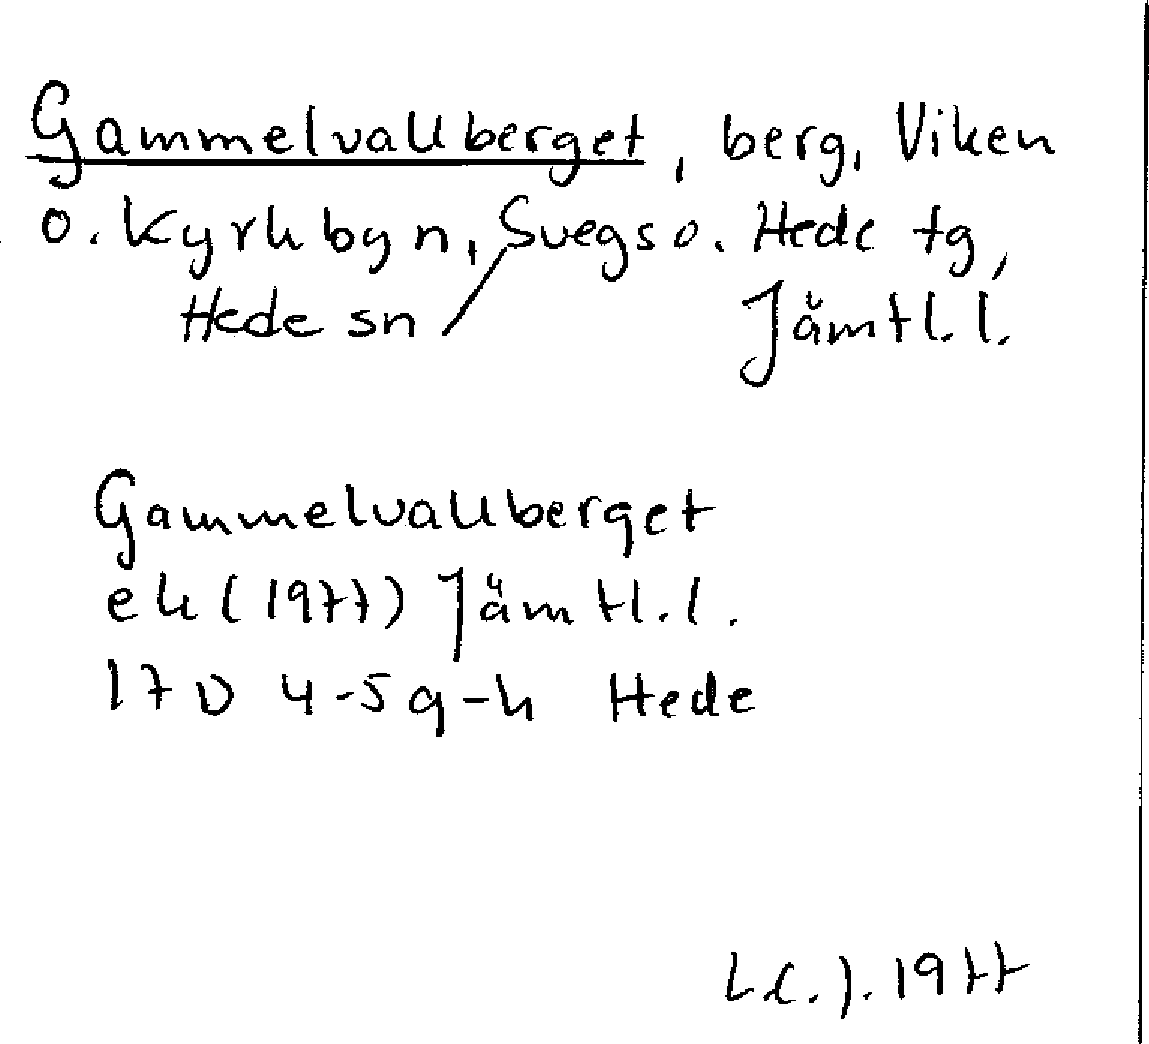 Gammelvallberget, berg, Viken
o. Kyrkbyn, Svegs o. Hede tg,
Hede sn / Jämtl. l.
Gammelvallberget
ek (1977) Jämtl. l.
17D 4-5 g-h Hede
L.C.J. 1977